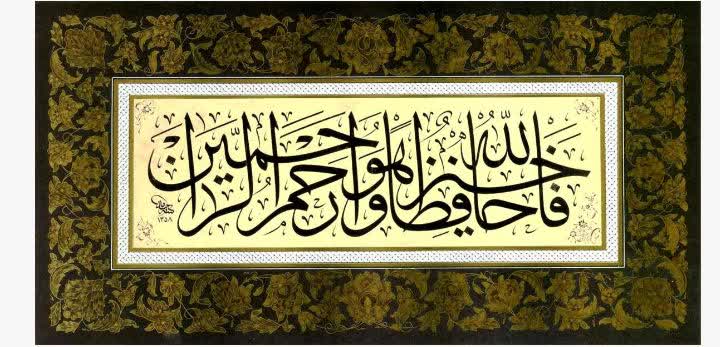 فَاللّٰهُ خَيْرٌ حَافِظًا وَهُوَ اَرْحَمُ الرَّاحِمِينَ
١٣٥٨